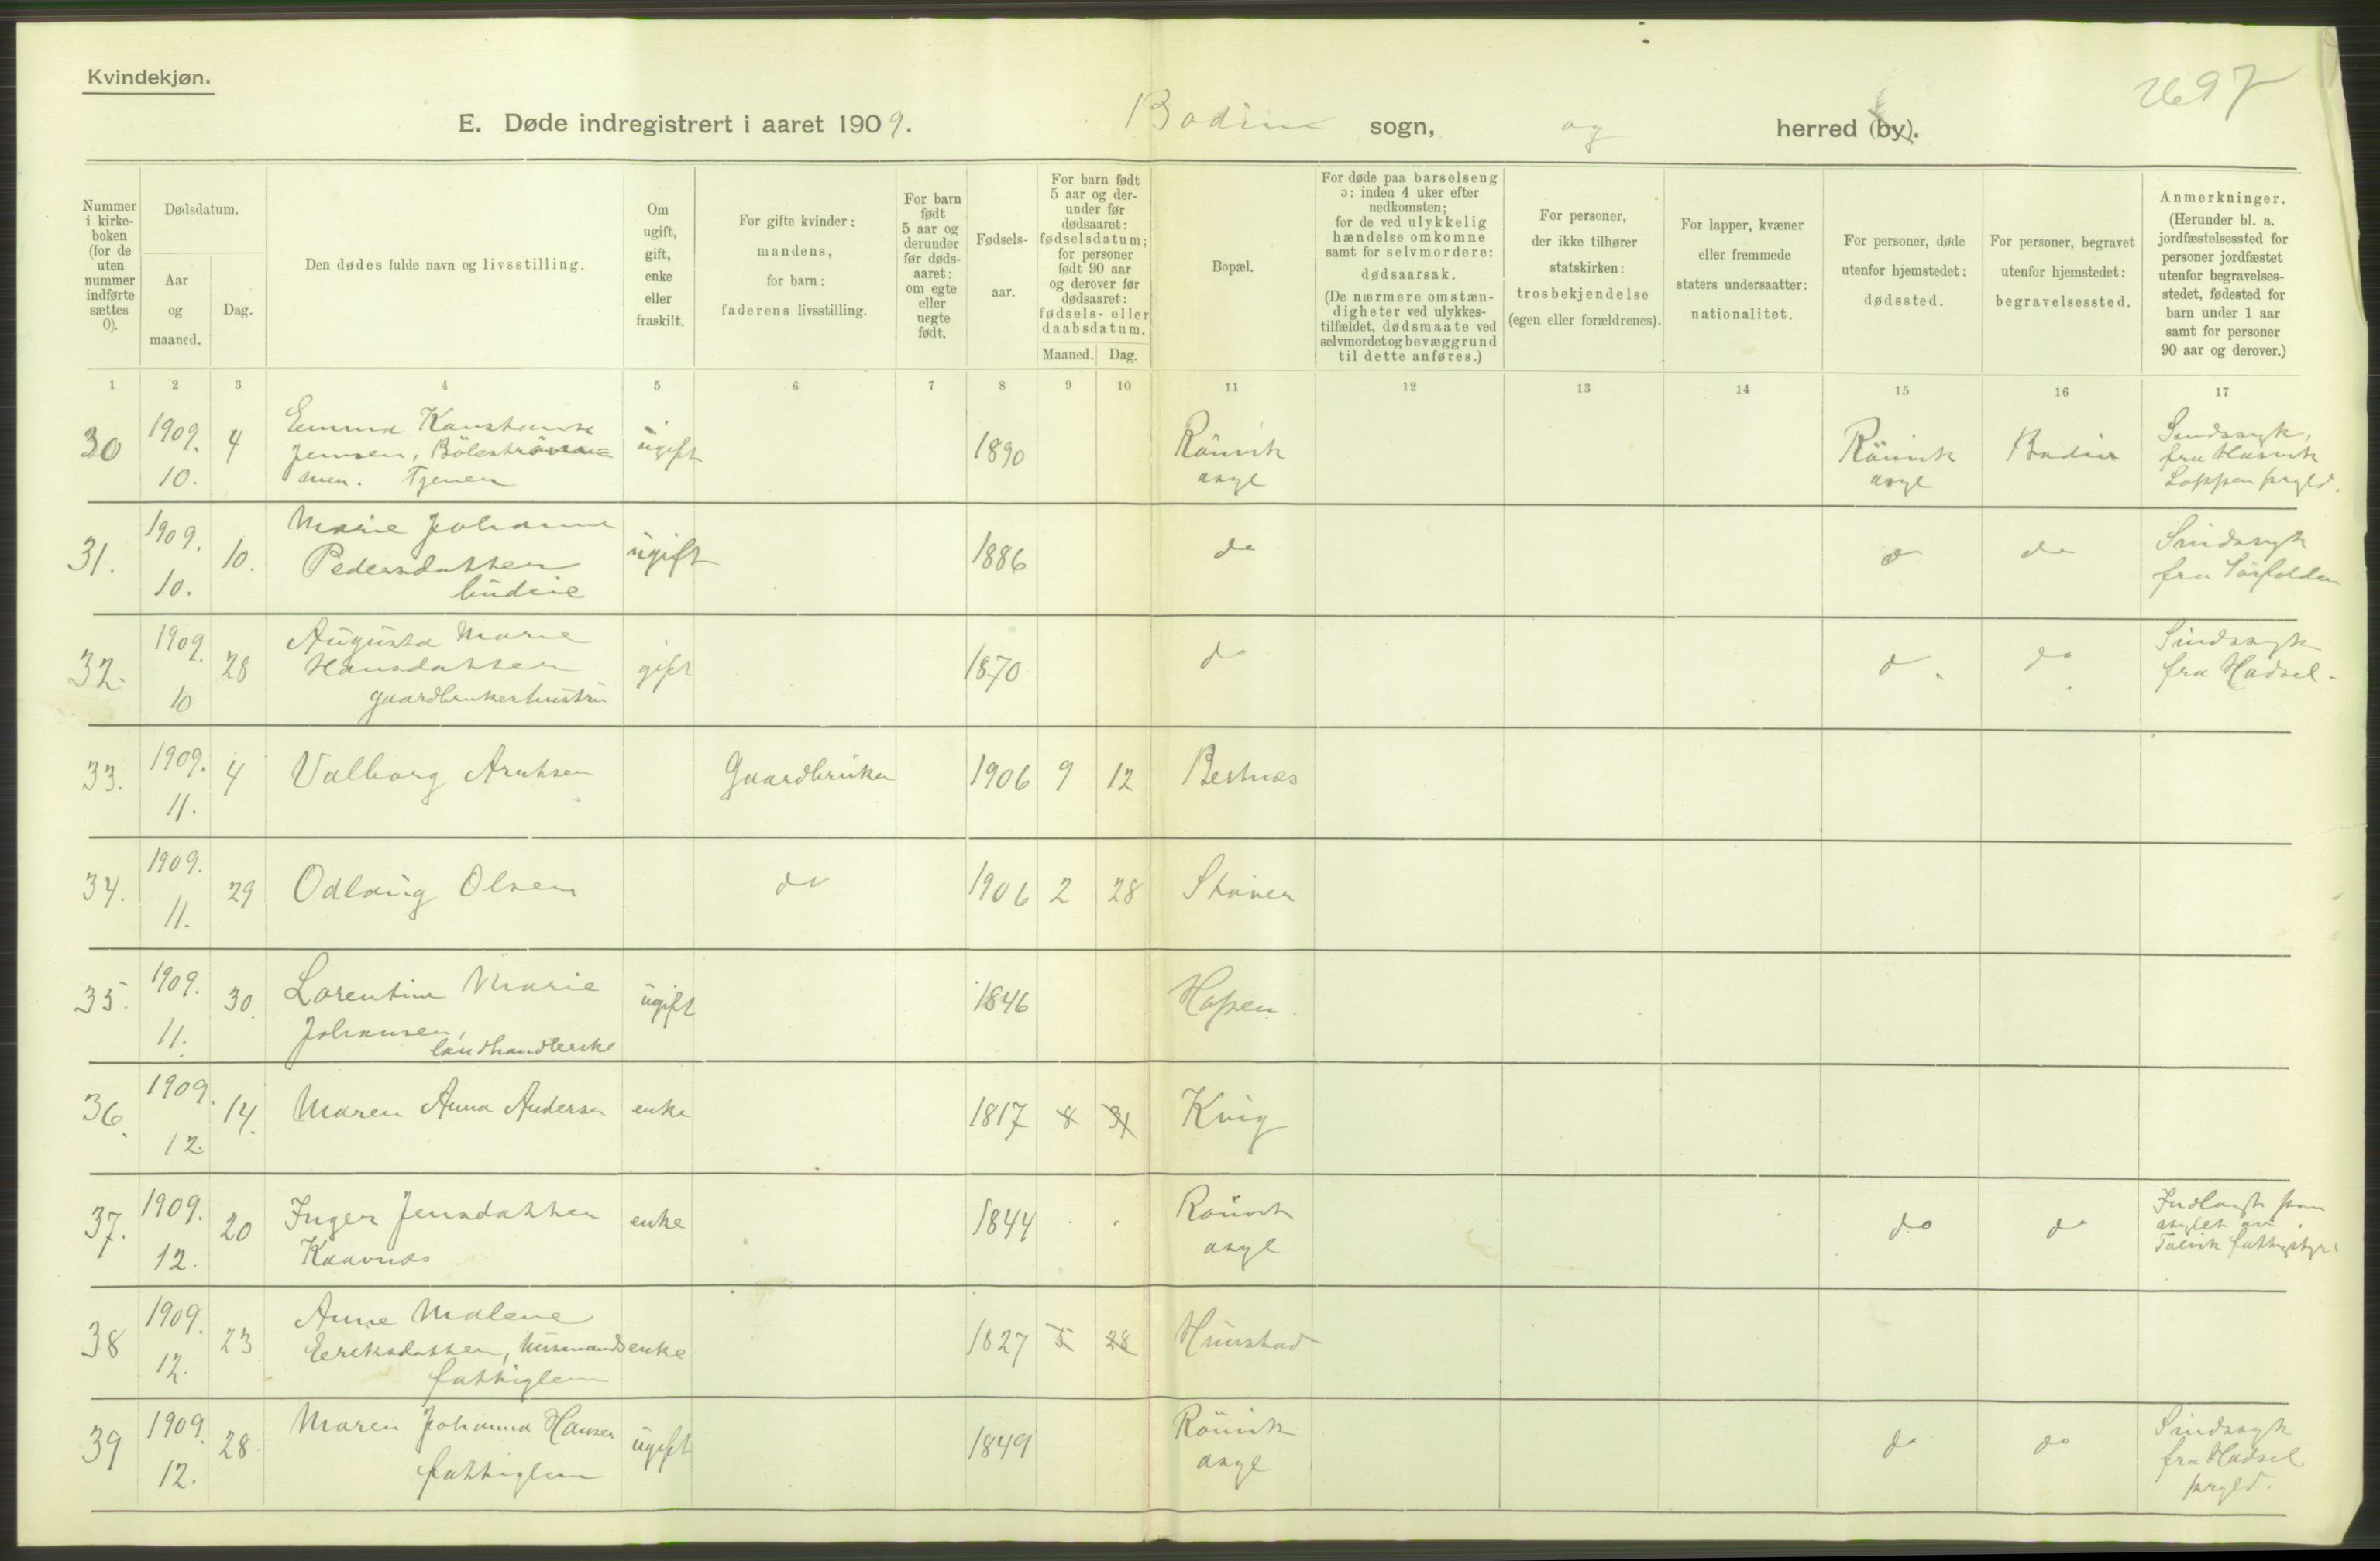 Kvindekjøn.
2697
E. Døde indregistrert i aaret 1909. Bodin sogn, og herred (by).
Nummer i kirkeboken (for de uten nummer indførte sættes 0).
Dødsdatum.
Aar og maaned.
Dag.
Den dødes fulde navn og livsstilling.
Om ugift, gift, enke eller fraskilt.
For gifte kvinder: mandens, for barn: faderens livsstilling.
For barn født 5 aar og derunder før dødsaaret: om egte eller uegte født.
Fødselsaar.
For barn født 5 aar og derunder før dødsaaret: fødselsdatum; for personer født 90 aar og derover før dødsaaret: fødsels- eller daabsdatum.
Maaned. Dag.
Bopæl.
For døde paa barselseng ɔ: inden 4 uker efter nedkomsten; for de ved ulykkelig hændelse omkomne samt for selvmordere: dødsaarsak. (De nærmere omstændigheter ved ulykkestilfældet, dødsmaate ved selvmordet og bevæggrund til dette anføres.)
For personer, der ikke tilhører statskirken: trosbekjendelse (egen eller forældrenes).
For lapper, kvæner eller fremmede staters undersaatter: nationalitet.
For personer, døde utenfor hjemstedet: dødssted.
For personer, begravet utenfor hjemstedet: begravelsessted.
Anmerkninger. (Herunder bl. a. jordfæstelsessted for personer jordfæstet utenfor begravelsesstedet, fødested for barn under 1 aar samt for personer 90 aar og derover.)
1 2 3 4 5 6 7 8 9 10 11 12 13 14 15 16 17
30 1909. 10. 4 Emma Konstanse Jensen, Tjener ugift 1890 Rönvik asyl Rönvik asyl Bodin Sindssyk, fra Hasvik Loppen prgld.
31. 1909. 10. 10. Marie Johanne Pedersdatter budeie ugift 1886 do do do Sindssyk fra Sörfolden
32. 1909. 10 28 Augusta Marie Hansdatter gaardbrukerhustru gift 1870 do do do Sindssyk fra Hadsel.
33. 1909. 11. 4 Valborg Arntsen Gaardbruker 1906 9 12 Bestnæs
34. 1909. 11. 29 Odlaug Olsen do 1906 2 28 Støver
35. 1909. 11. 30. Lorentine Marie Johansen, landhandlerske ugift 1846 Hopen.
36. 1909. 12. 14. Maren Anna Andersen enke 1817 8 31 Kvig
37. 1909. 12. 20 Inger Jensdatter Kaavnæs enke 1844 Rönvik asyl do do Indlagt paa asylet av Talvik fattigstyr
38 1909. 12. 23 Anne Malene Eriksdatter, husmandsenke fattiglem 1827 5 28 Hunstad
39 1909. 12. 28 Maren Johanna Hansen fattiglem ugift 1849 Rönvik asyl do do Sindssyk fra Hadsel prgld.